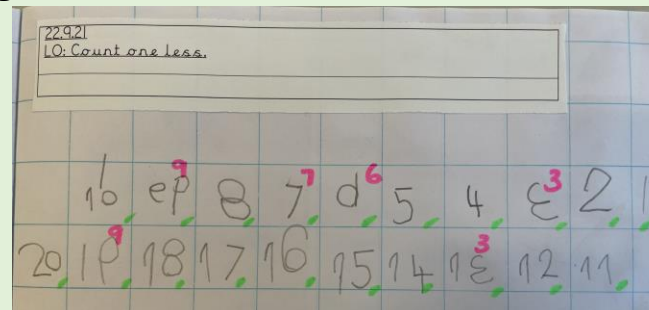 22.9.21
LO: Count one less.
9 7 6 3
10 9 8 7 6 5 4 3 2 1
9 3
20 19 18 17 16 15 14 13 12 11